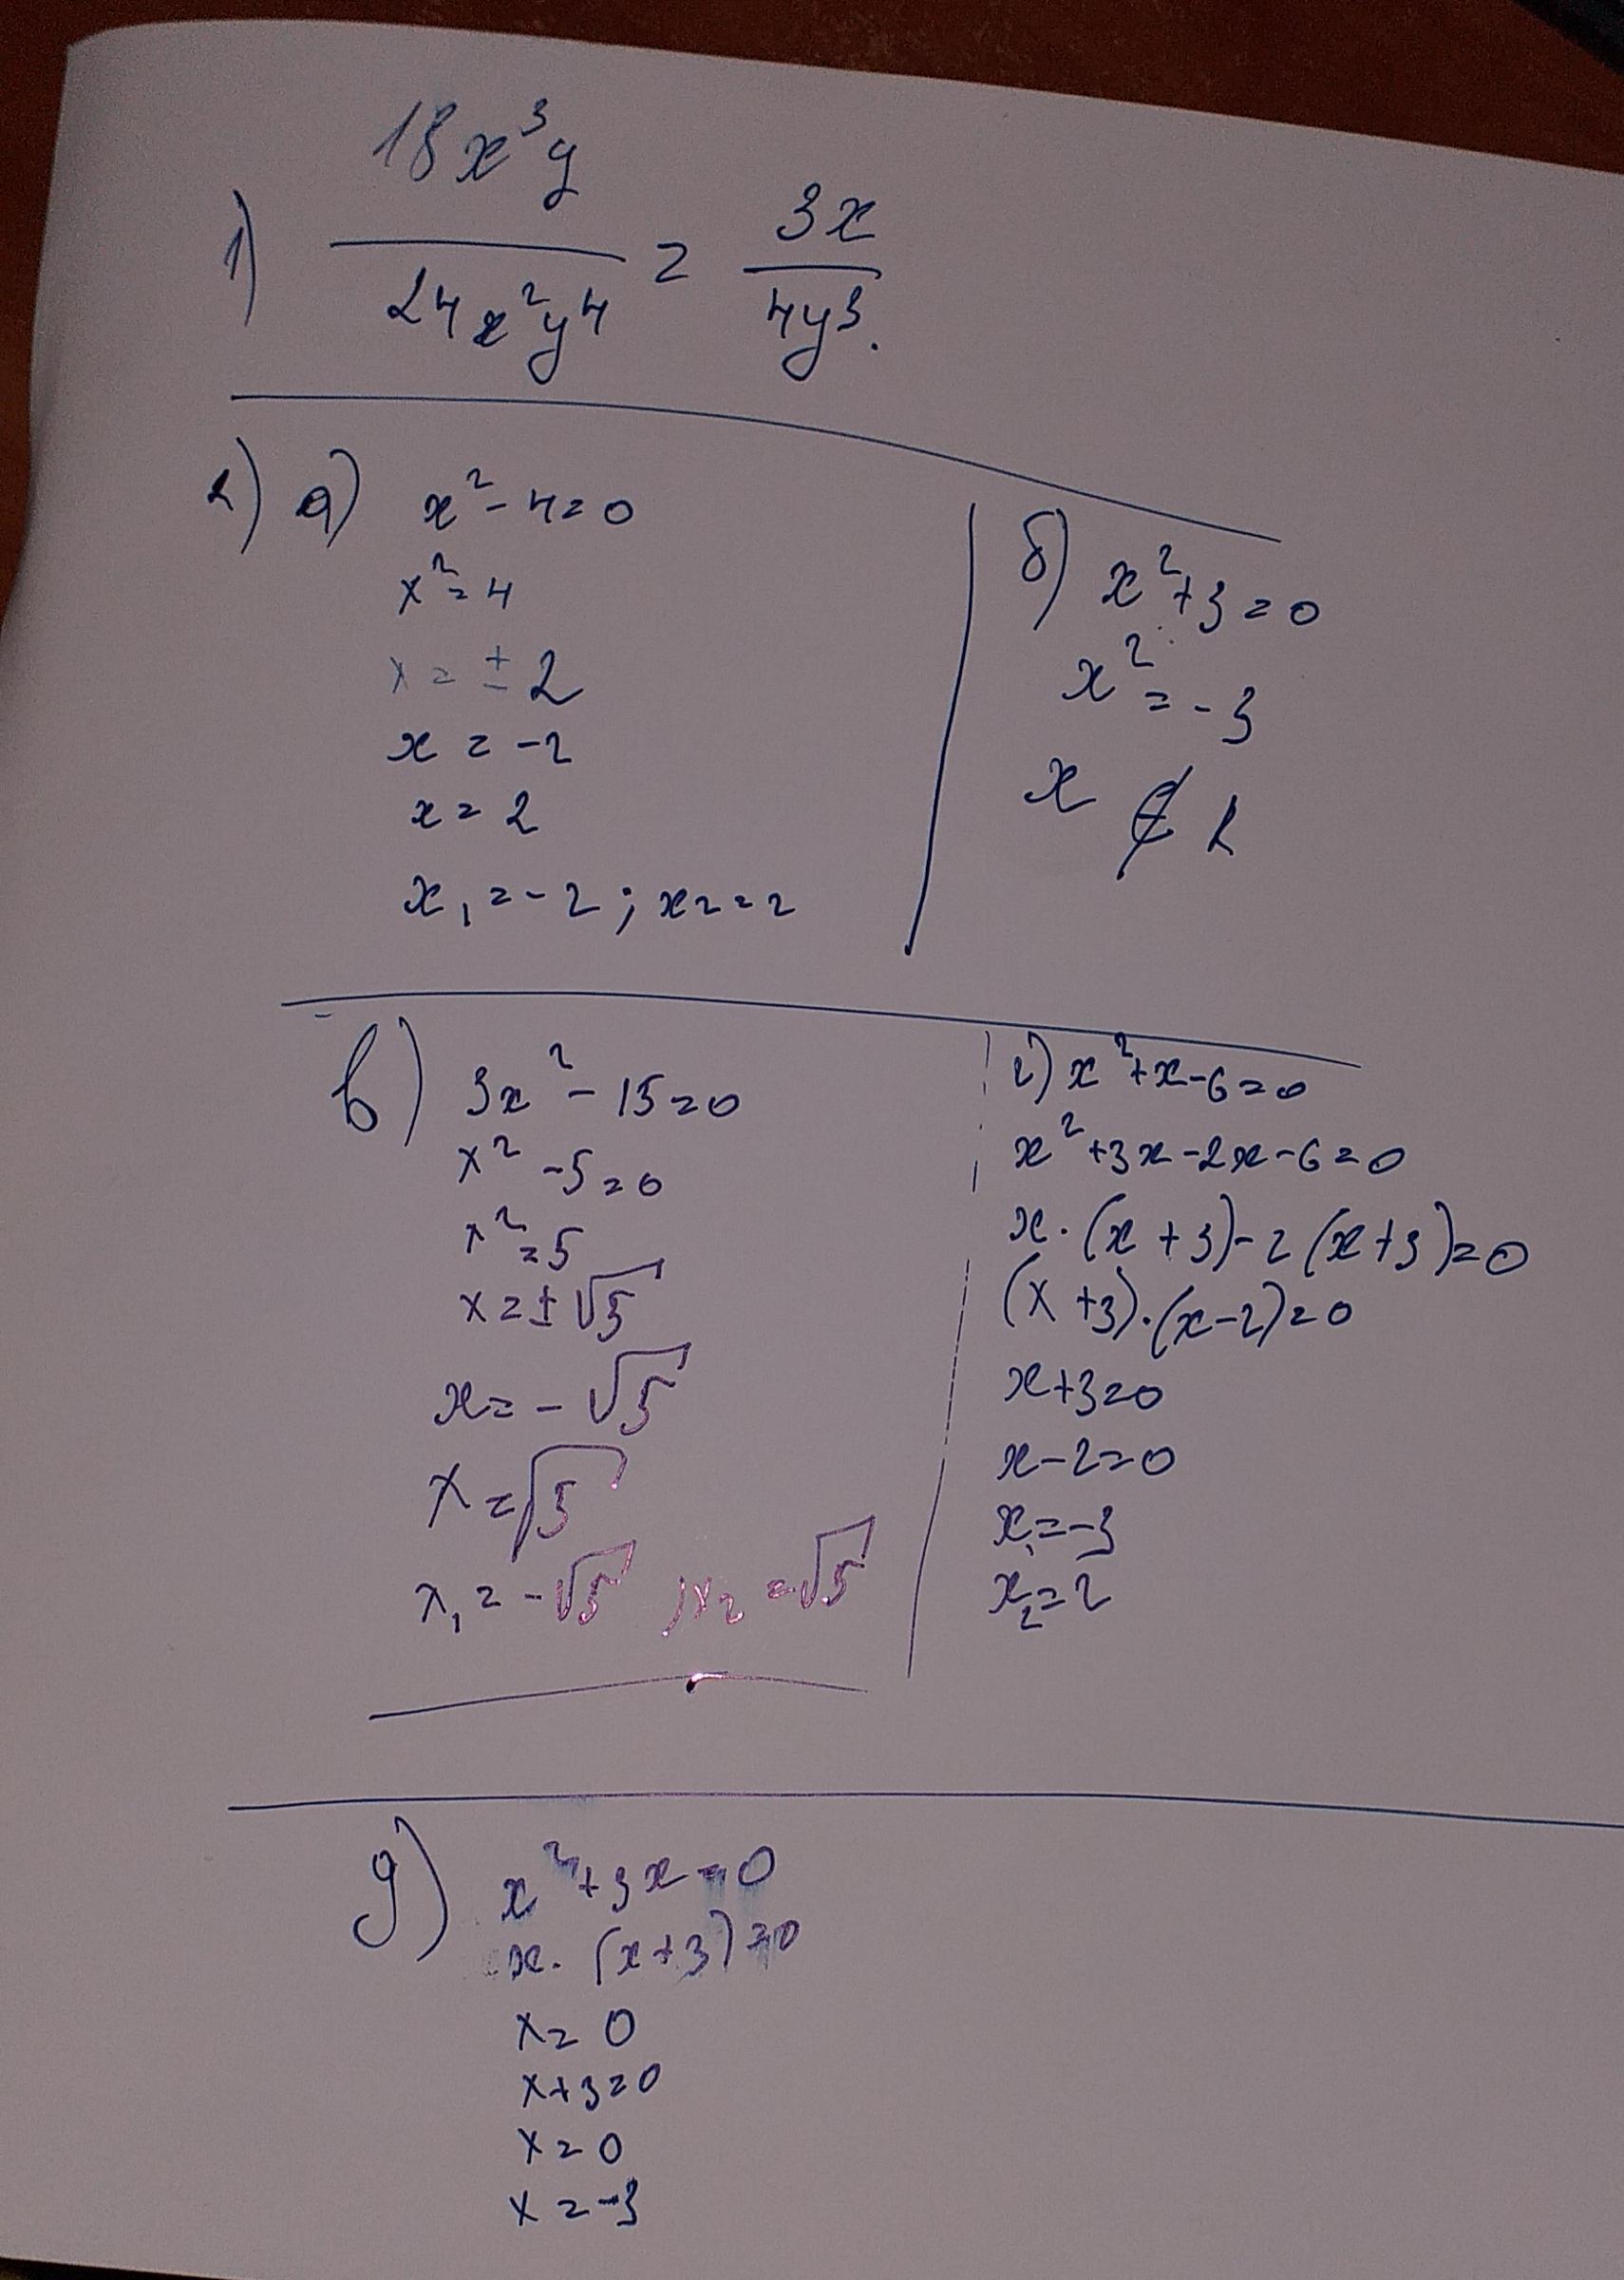 1) 18x³y / 24x²y⁴ = 3x / 4y³.
2) а) x² - 4 = 0
x² = 4
x = ± 2
x = -2
x = 2
x₁ = -2 ; x₂ = 2
б) x² + 3 = 0
x² = -3
x ∉ R
в) 3x² - 15 = 0
x² - 5 = 0
x² = 5
x = ± √5
x = - √5
x = √5
x₁ = -√5 ; x₂ = √5
г) x² + x - 6 = 0
x² + 3x - 2x - 6 = 0
x · (x + 3) - 2 (x + 3) = 0
(x + 3) · (x - 2) = 0
x + 3 = 0
x - 2 = 0
x₁ = -3
x₂ = 2
д) x² + 3x = 0
x · (x + 3) = 0
x = 0
x + 3 = 0
x = 0
x = -3